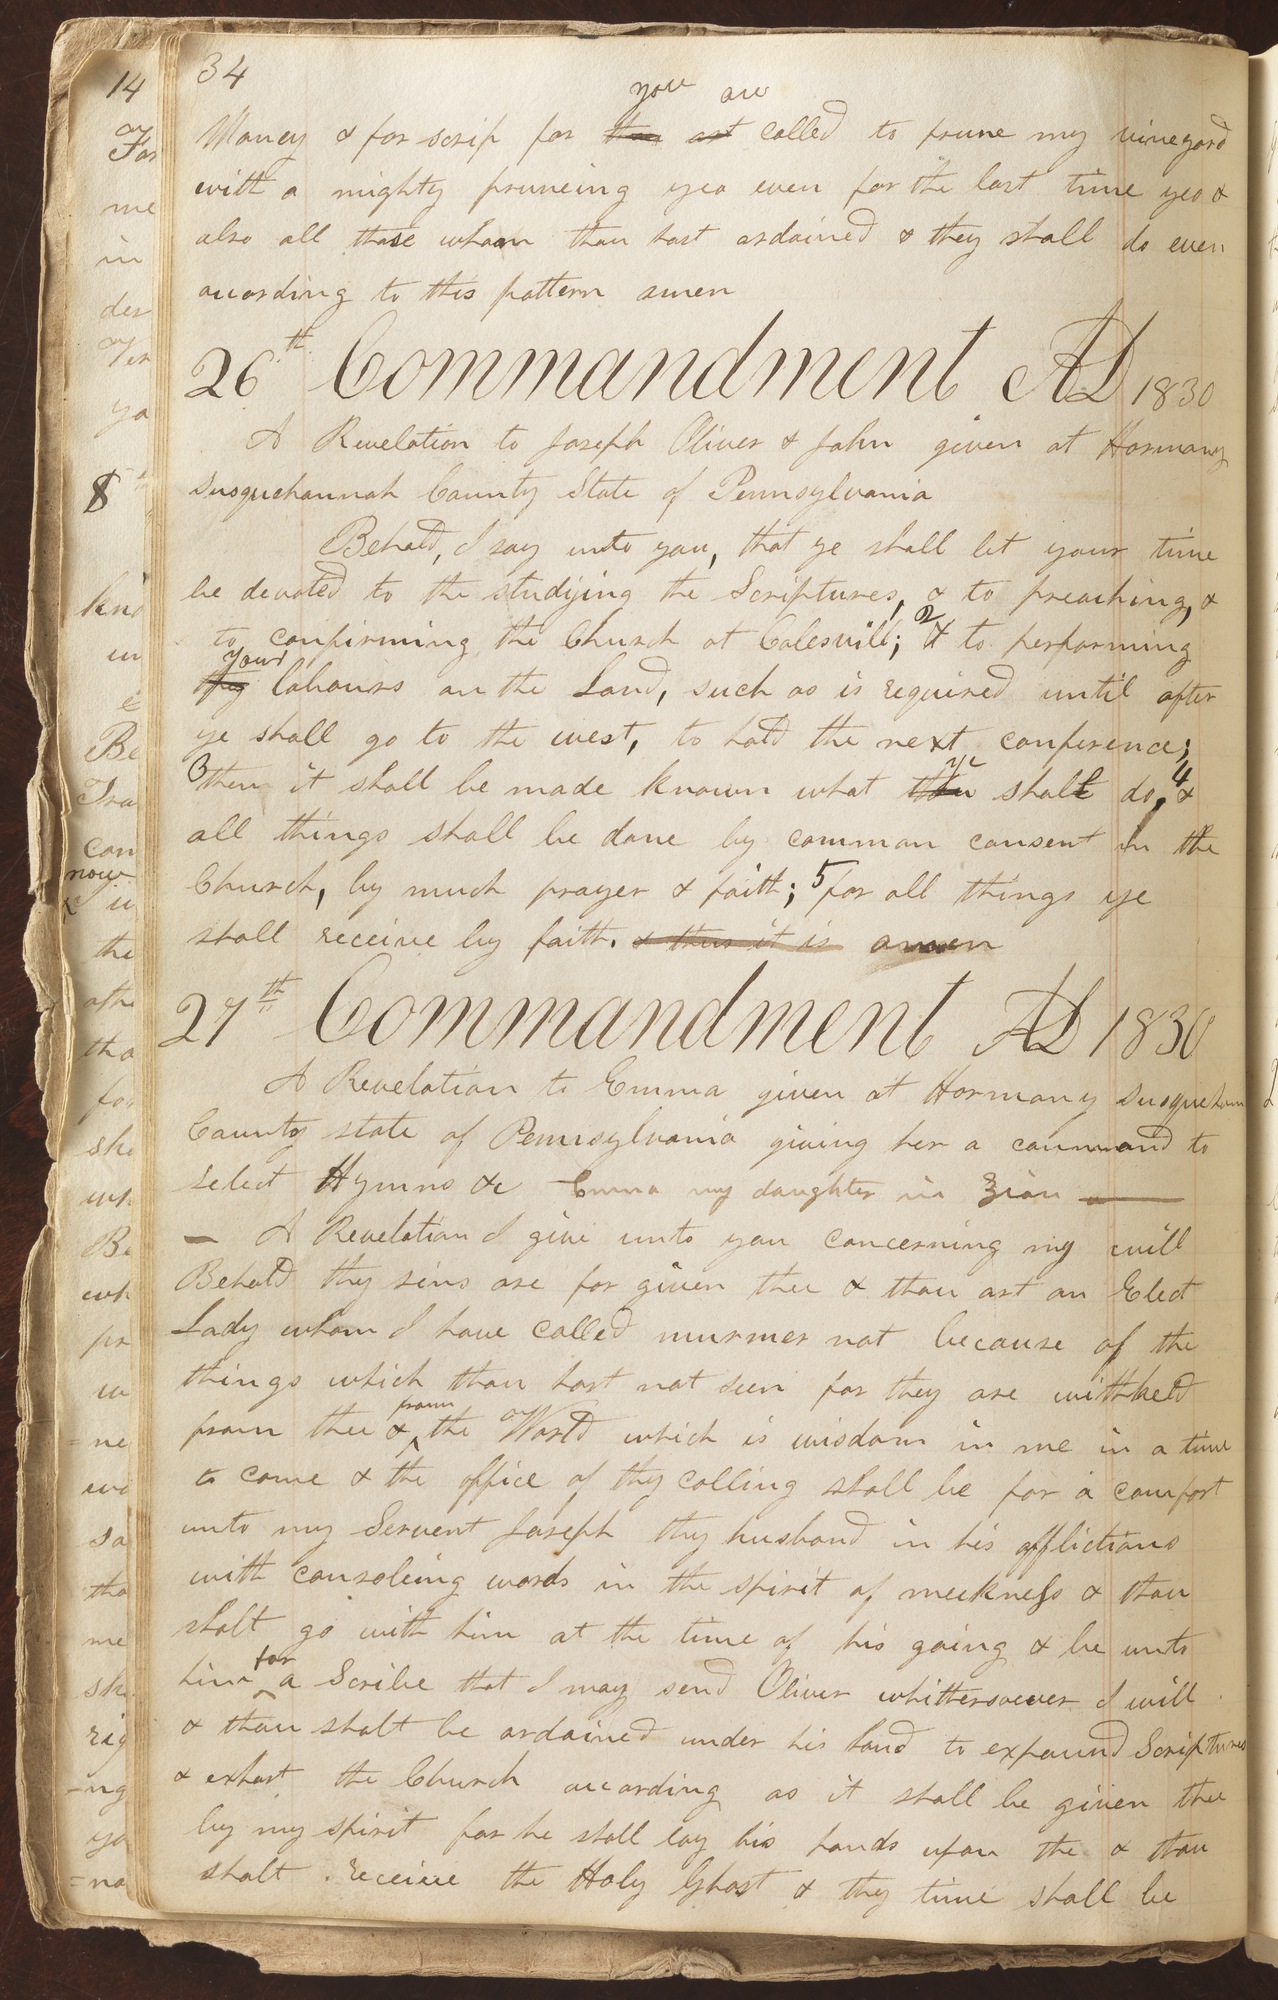 34
you are
Money & for scrip for thou art called to prune my vineyard
with a mighty pruneing yea even for the last time yea &
also all those whom thou hast ordained & they shall do even
according to this pattern amen
26th Commandment AD 1830
A Revelation to Joseph Oliver & John given at Harmony
Susquehannah County State of Pennsylvania
Behold, I say unto you, that ye shall let your time
be devoted to the studying the Scriptures, & to preaching, &
to confirming the Church at Colesvill; 2 & to performing
your
thy labours on the Land, such as is required until after
ye shall go to the west, to hold the next conference;
ye
3 then it shall be made known what thou shalt do. 4 &
all things shall be done by common consent in the
Church, by much prayer & faith; 5 for all things ye
shall receive by faith. & thus it is amen
27th Commandment AD 1830
A Revelation to Emma given at Harmony Susquehan
County state of Pennsylvania giving her a command to
select Hymns &c Emma my daughter in Zion
— A Revelation I give unto you concerning my will
Behold thy sins are for given thee & thou art an Elect
Lady whom I have called murmer not because of the
things which thou hast not seen for they are withheld
from
from thee & ^ the World which is wisdom in me in a time
to come & the office of thy calling shall be for a comfort
unto my Servent Joseph thy husband in his afflictions
with consoleing words in the spirit of meekness & thou
shalt go with him at the time of his going & be unto
for
him ^ a Scribe that I may send Oliver whithersoever I will
& thou shalt be ordained under his hand to expound Scriptures
& exhort the Church according as it shall be given thee
by my spirit for he shall lay his hands upon the & thou
shalt receive the Holy Ghost & thy time shall be